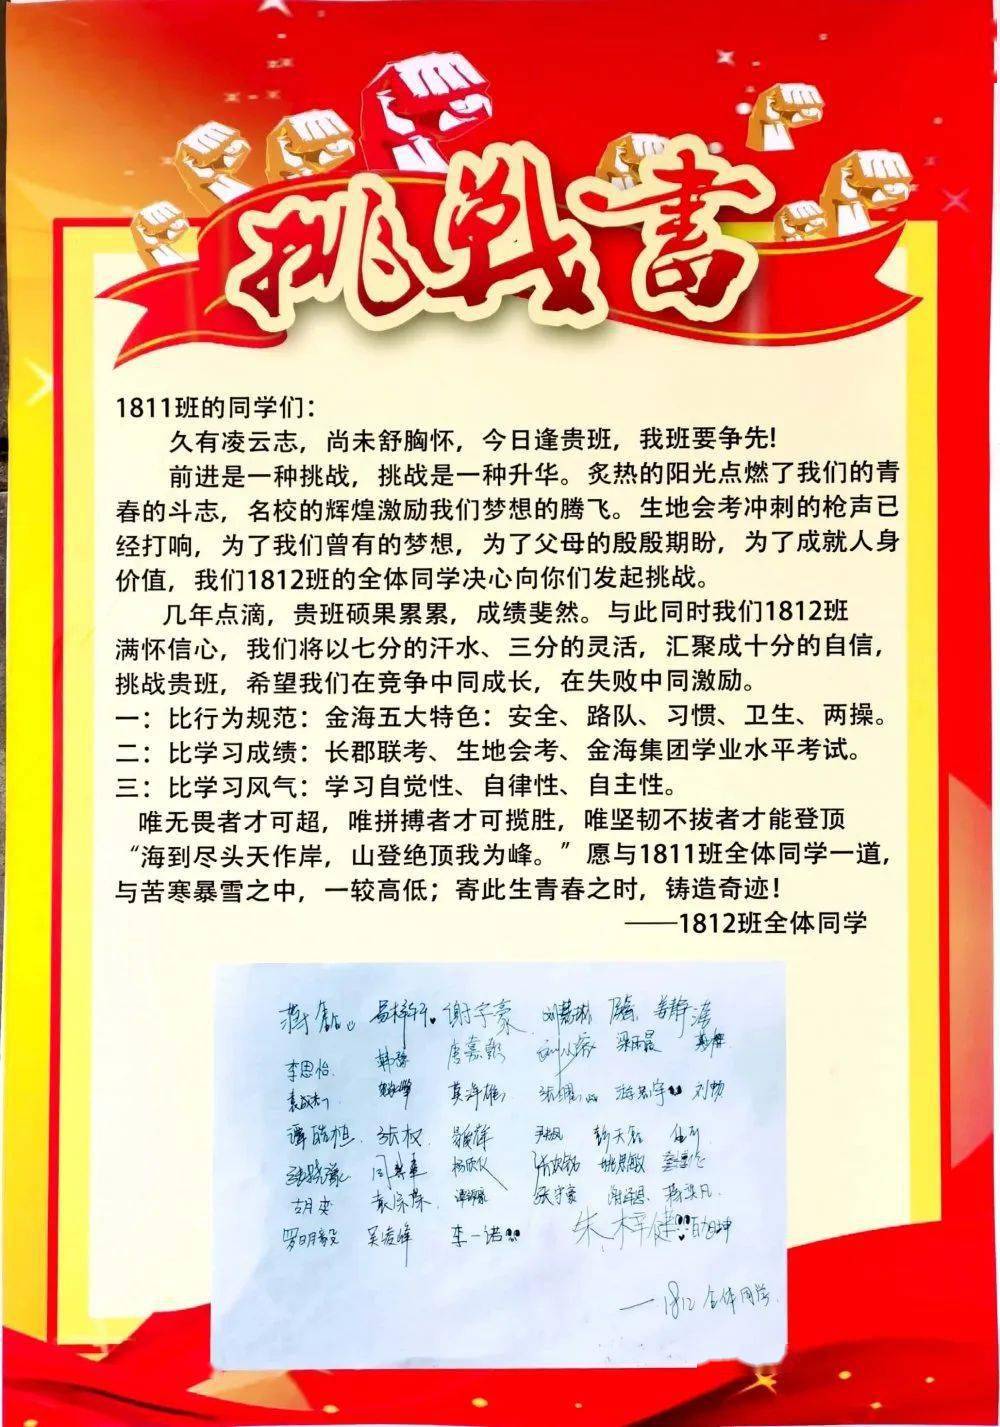 挑战书
1811班的同学们：
久有凌云志，尚未舒胸怀，今日逢贵班，我班要争先!
前进是一种挑战，挑战是一种升华。炙热的阳光点燃了我们的青
春的斗志，名校的辉煌激励我们梦想的腾飞。生地会考冲刺的枪声已
经打响，为了我们曾有的梦想，为了父母的殷殷期盼，为了成就人身
价值，我们1812班的全体同学决心向你们发起挑战。
几年点滴，贵班硕果累累，成绩斐然。与此同时我们1812班
满怀信心，我们将以七分的汗水、三分的灵活，汇聚成十分的自信，
挑战贵班，希望我们在竞争中同成长，在失败中同激励。
一：比行为规范：金海五大特色：安全、路队、习惯、卫生、两操。
二：比学习成绩：长郡联考、生地会考、金海集团学业水平考试。
三：比学习风气：学习自觉性、自律性、自主性。
唯无畏者才可超，唯拼搏者才可揽胜，唯坚韧不拔者才能登顶
“海到尽头天作岸，山登绝顶我为峰。”愿与1811班全体同学一道，
与苦寒暴雪之中，一较高低；寄此生青春之时，铸造奇迹！
——1812班全体同学
谢宇豪 姜静
李思怡 唐嘉懿
莫泽雄 刘畅
张权 彭天磊
姚思敏
胡奕
罗明毅 吴俊峰 李一诺 朱梓健
—1812全体同学